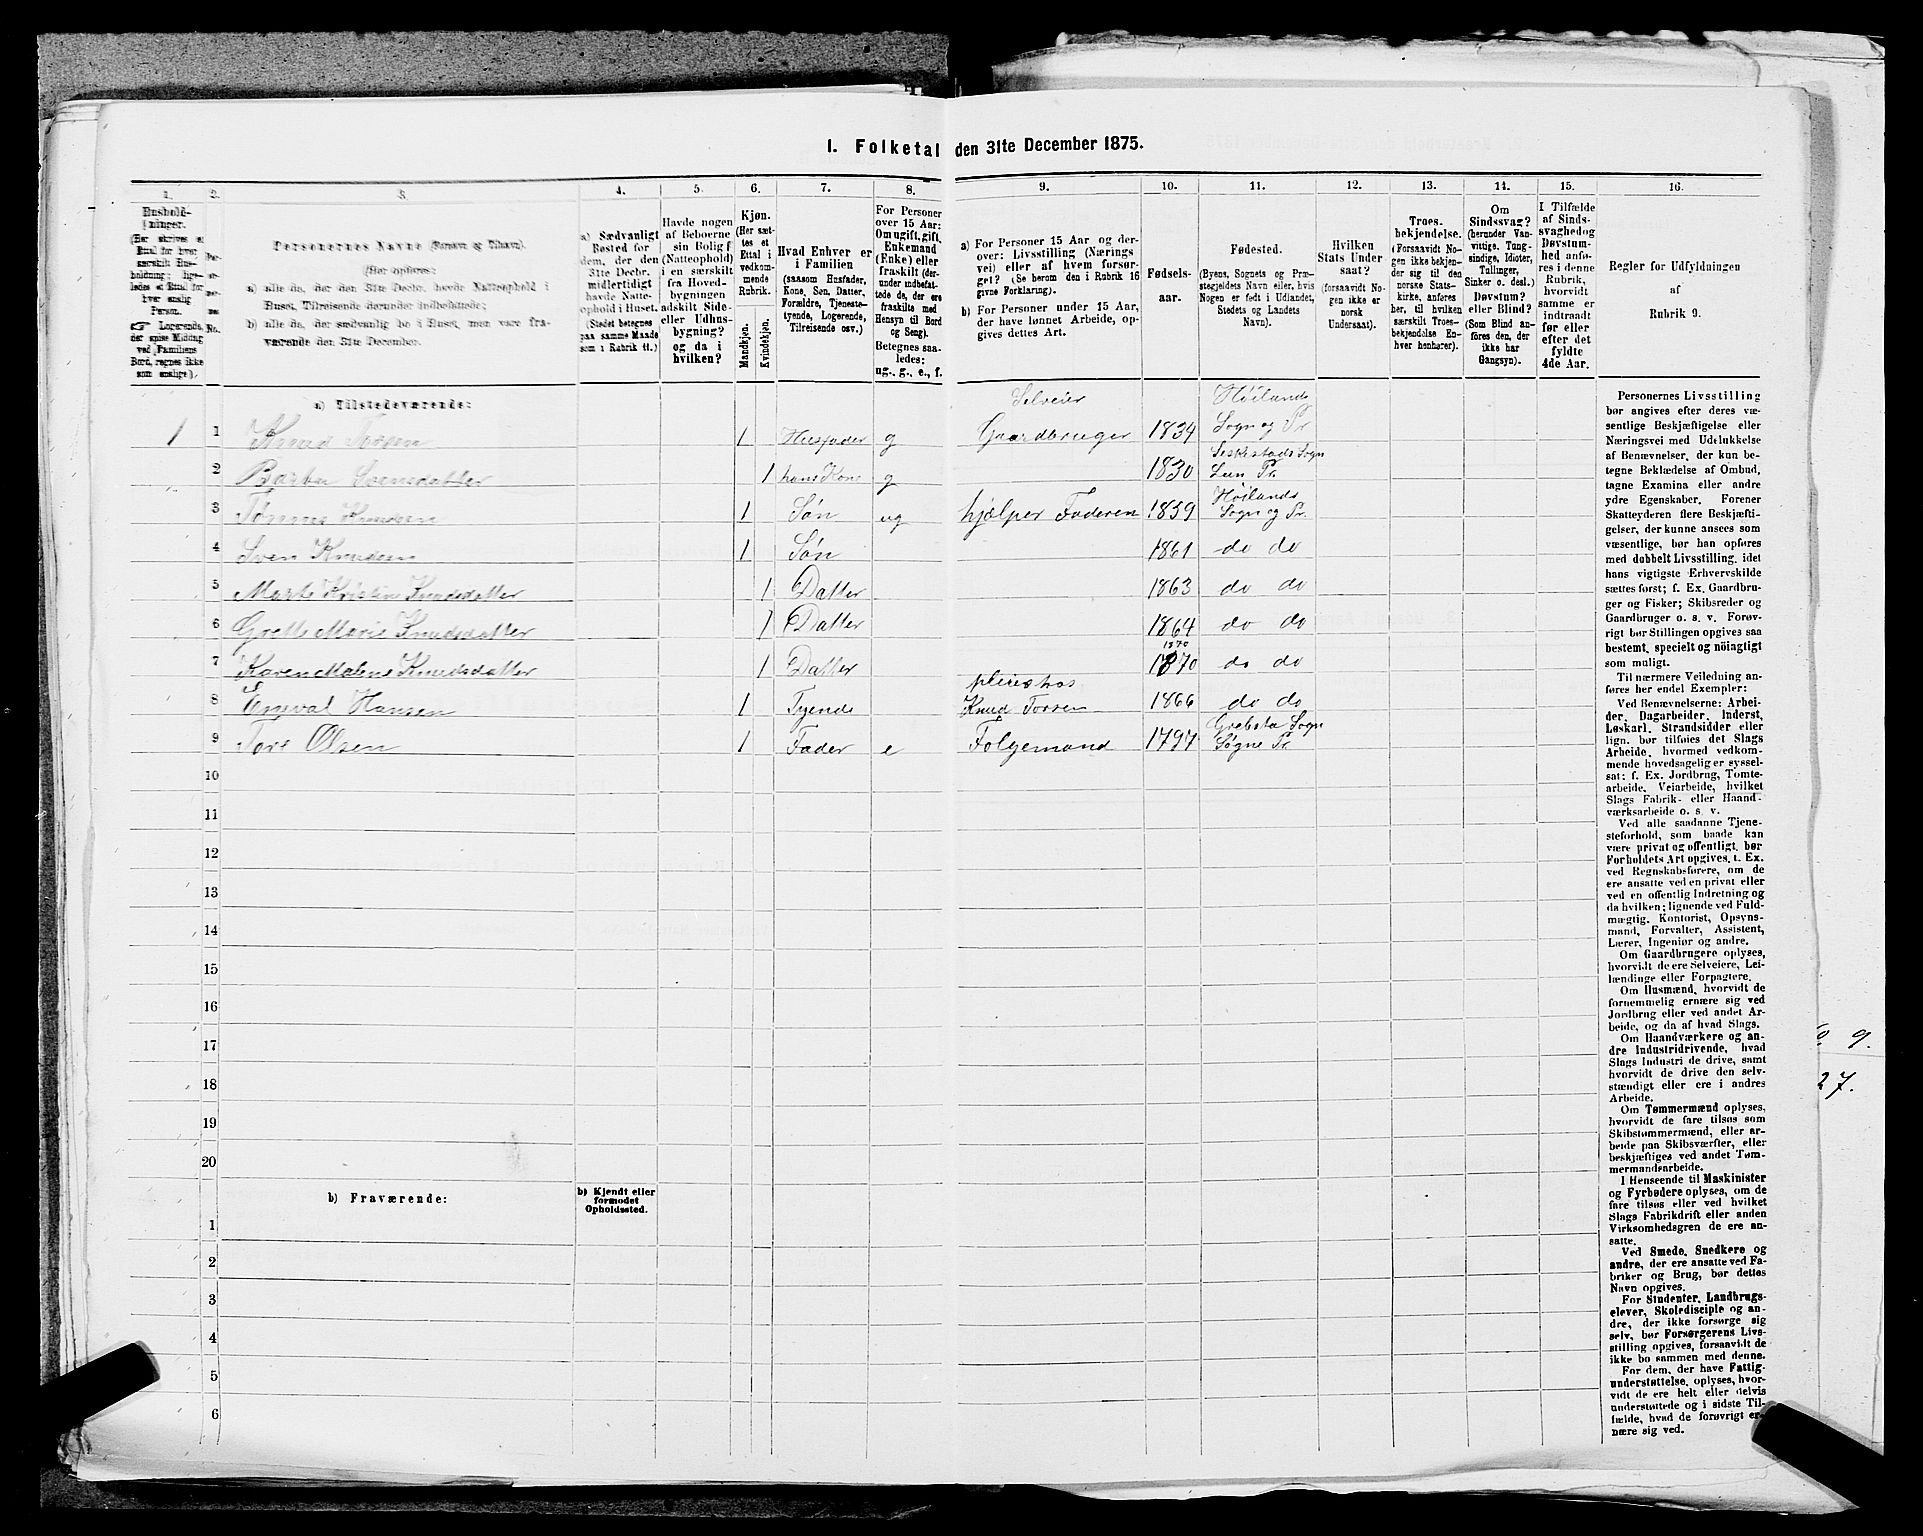 I. Folketal den 31te December 1875.
1. 2. 3. 4. 5. 6. 7. 8. 9. 10. 11. 12. 13. 14. 15. 16.
Hushold-
ninger.
(Her skrives et
Ettal for hver
særskilt Hus-
holdning; lige-
ledes et Ettal
for hver
enslig
Person.
☞ Logerende,
der spise Middag
ved Familiens
Bord, regnes ikke
som enslige).
Personernes Navne (Fornavn og Tilnavn).
(Her opføres:
a) alle de, der den 31te Decbr. havde Natteophold i
Huset, Tilreisende derunder indbefattede;
b) alle de, der sædvanlig bo i Huset, men vare fra-
værende den 31te December.
a) Sædvanligt
Bosted for
dem, der den
31te Decbr.
midlertidigt
havde Natte-
ophold i Huset.
(Stedet betegnes
paa samme Maade
som i Rubrik 11.)
Havde nogen
af Beboerne
sin Bolig
(Natteophold)
i en særskilt
fra Hoved-
bygningen
adskilt Side-
eller Udhus-
bygning?
og da i
hvilken?
Kjøn.
(Her sæt-
tes et
Ettal i
vedkom-
mende
Rubrik.
Mandkjøn.
Kvindekjøn.
Hvad Enhver er
i Familien
(saasom Husfader,
Kone, Søn, Datter,
Forældre, Tjeneste-
tyende, Logerende,
Tilreisende osv.)
For Personer
over 15 Aar:
Om ugift, gift,
Enkemand
(Enke) eller
fraskilt (der-
under indbefat-
tede de, der ere
fraskilte med
Hensyn til Bord
og Seng).
Betegnes saa-
ledes:
ug., g., e., f.
a) For Personer 15 Aar og der-
over: Livsstilling (Nærings
vei) eller af hvem forsør-
get? (Se herom den i Rubrik 16
givne Forklaring).
b) For Personer under 15 Aar,
der have lønnet Arbeide, op-
gives dettes Art.
Fødsels-
aar.
Fødested.
(Byens, Sognets og Præ-
stegjeldets Navn eller, hvis
Nogen er født i Udlandet,
Stedets og Landets
Navn).
Hvilken
Stats Under
saat?
(forsaavidt No-
gen ikke er
norsk
Undersaat).
Troes-
bekjendelse.
(Forsaavidt No-
gen ikke bekjen-
der sig til den
norske Stats-
kirke, anføres
her, til hvilken
særskilt Troes-
bekjendelse En-
hver henhører).
Om
Sindssvag?
(herunder Van-
vittige, Tung-
sindige, Idioter,
Tullinger,
Sinker o. desl.)
Døvstum?
eller Blind?
(Som Blind an-
føres den, der
ikke har
Gangsyn).
I Tilfælde
af Sinds-
svaghed og
Døvstum-
hed anfø-
res i denne
Rubrik,
hvorvidt
samme er
indtraadt
før eller
efter det
fyldte
4de Aar.
Regler for Udfyldningen
af
Rubrik 9.
a) Tilstedeværende:
1 1 Knud 1 Husfader g Selveier Gaardbruger 1834 Höilands Sogn og Pr
2 Svensdatter 1 hans Kone g 1830 Sogn Pr.
3 Tønnes Knudsen 1 Søn ug hjælper Faderen 1859 Höilands Sogn og Pr.
4 Sven Knudsen 1 Søn 1861 do do
5 Marte Kristine Knudsdatter 1 Datter 1863 do do
6 Grette Marie Knudsdatter 1 Datter 1864 do do
7 Karen Malene Knudsdatter 1 Datter 1870 1870 do do
8 Hansen 1 Tyende Knud 1866 do do
9 Tore Olsen 1 Fader e Folgemand 1797 Sogn Søgne Pr.
10
11
12
13
14
15
16
17
18
19
20
b) Fraværende:
b) Kjendt eller
formodet
Opholdssted.
1
2
3
4
5
6
Personernes Livsstilling
bør angives efter deres væ-
sentlige Beskjæftigelse eller
Næringsvei med Udelukkelse
af Benævnelser, der kun be-
tegne Beklædelse af Ombud,
tagne Examina eller andre
ydre Egenskaber. Forener
Skatteyderen flere Beskjæfti-
gelser, der kunne ansees som
væsentlige, bør han opføres
med dobbelt Livsstilling, idet
hans vigtigste Erhvervskilde
sættes først; f. Ex. Gaardbru-
ger og Fisker; Skibsreder og
Gaardbruger o. s. v. Forøv-
rigt bør Stillingen opgives saa
bestemt, specielt og nöiagtigt
som muligt.
Til nærmere Veiledning an-
føres her endel Exempler:
Ved Benævnelserne: Arbei-
der, Dagarbeider, Inderst,
Løskarl, Strandsidder eller
lign. bør tilføies det Slags
Arbeide, hvormed vedkom-
mende hovedsagelig er syssel-
sat; f. Ex. Jordbrug, Tomte-
arbeide, Veiarbeide, hvilket
Slags Fabrik- eller Haand-
værksarbeide o. s. v.
Ved alle saadanne Tjene-
steforhold, som baade kan
være privat og offentligt, bør
Forholdets Art opgives, t. Ex.
ved Regnskabsførere, om de
ere ansatte ved en privat eller
ved en offentlig Indretning og
da hvilken; lignende ved Fuld-
mægtig, Kontorist, Opsyns-
mand, Forvalter, Assistent,
Lærer, Ingeniør og andre.
Om Gaardbrugere oplyses,
hvorvidt de ere Selveiere, Lei-
lændinge eller Forpagtere.
Om Husmænd, hvorvidt de
fornemmelig ernære sig ved
Jordbrug eller ved andet Ar-
beide, og da af hvad Slags.
Om Haandværkere og an-
dre Industridrivende, hvad
Slags Industri de drive, samt
hvorvidt de drive den selv-
stændigt eller ere i andres
Arbeide.
Om Tømmermænd oplyses,
hvorvidt de fare tilsøs som
Skibstømmermænd, eller ar-
beide paa Skibsværfter, eller
beskjæftiges ved andet Tøm-
mermandsarbeide.
I Henseende til Maskinister
og Fyrbødere oplyses, om de
fare tilsøs eller ved hvilket
Slags Fabrikdrift eller anden
Virksomhedsgren de ere an-
satte.
Ved Smede, Snedkere og
andre, der ere ansatte ved Fa-
briker og Brug, bør dettes
Navn opgives.
For Studenter, Landbrugs-
elever, Skoledisciple og an-
dre, der ikke forsørge sig
selv, bør Forsørgerens Livs-
stilling opgives, forsaavidt de
ikke bo sammen med denne.
For dem, der have Fattig-
understøttelse, oplyses, hvor-
vidt de ere helt eller delvis
understøttede og i sidste Til-
fælde, hvad de forøvrigt er-
nære sig ved.
9.
27.